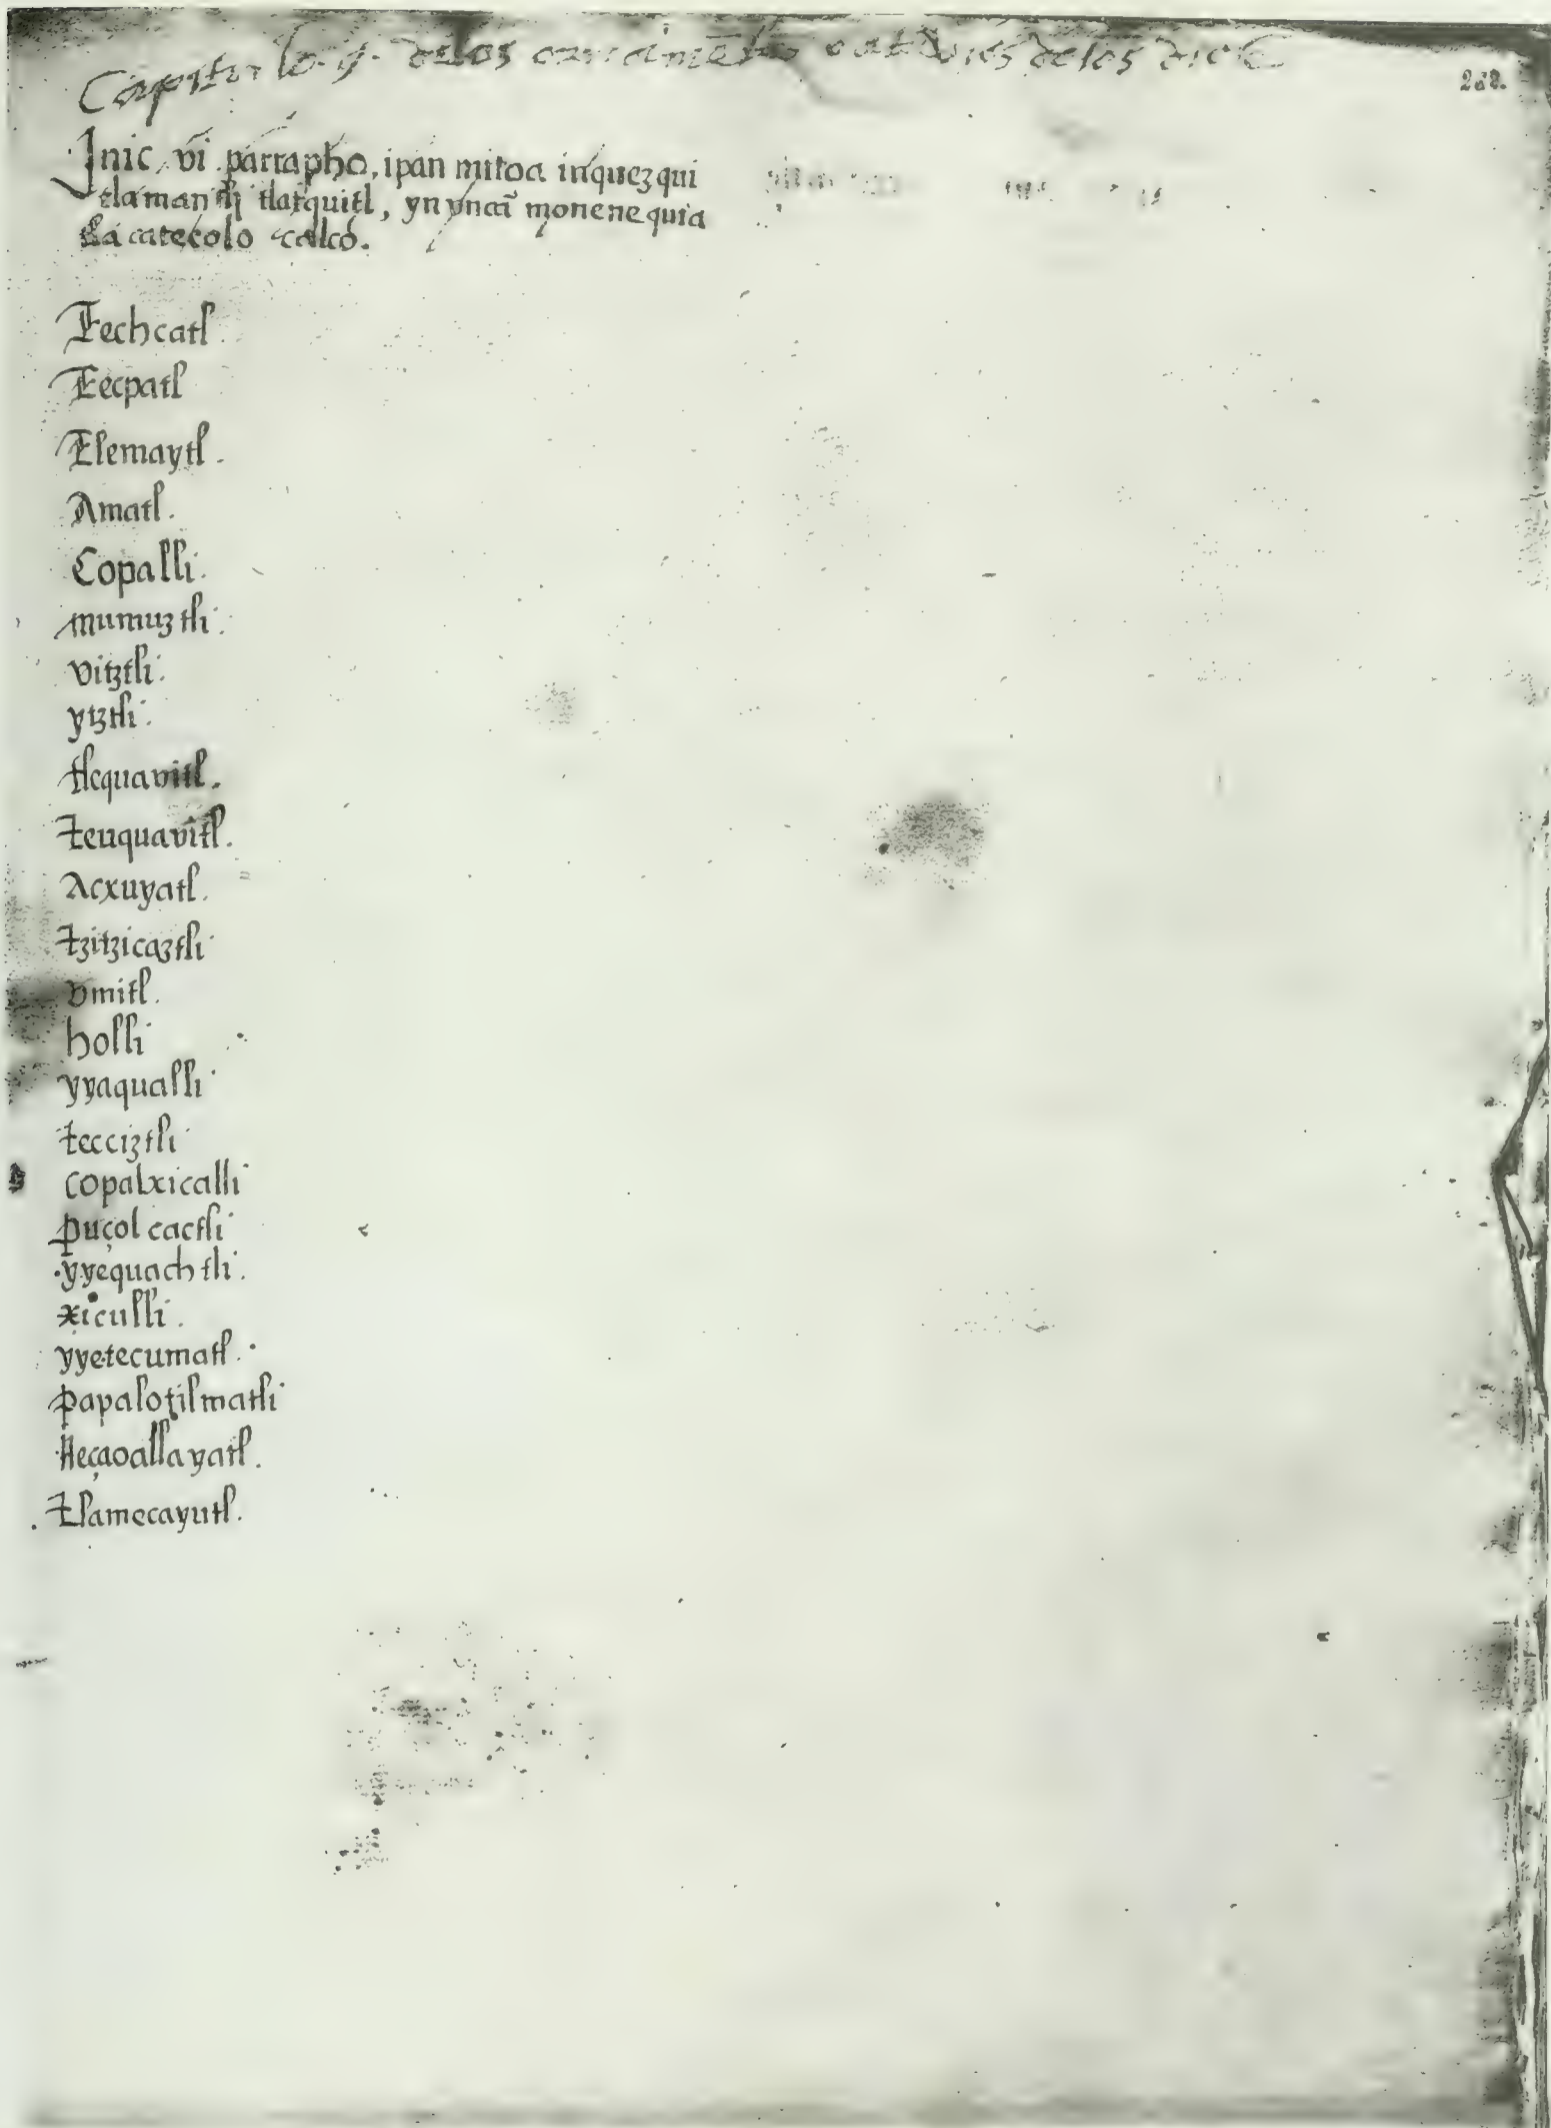 Capitulo. de los ornamẽtos de los dio
Jnic vi parrapho, ipan mitoa inquezqui
tlamantli tlatquitl, yn vncã monenequia
tlacatecolo calco.
Techcatl
Tecpatl
Tlemaytl.
Amatl.
Copalli.
mumuztli.
vitztli.
ytztli.
tlequavitl.
teuquavitl.
Acxuyatl.
tzitzicaztli
vmitl.
holli
yyaqualli
tecciztli
copalxicalli
puçol cactli
yyequachtli.
xiculli.
yyetecumatl.
papalotilmatli
Neçaoallayatl.
Tlamecayutl.